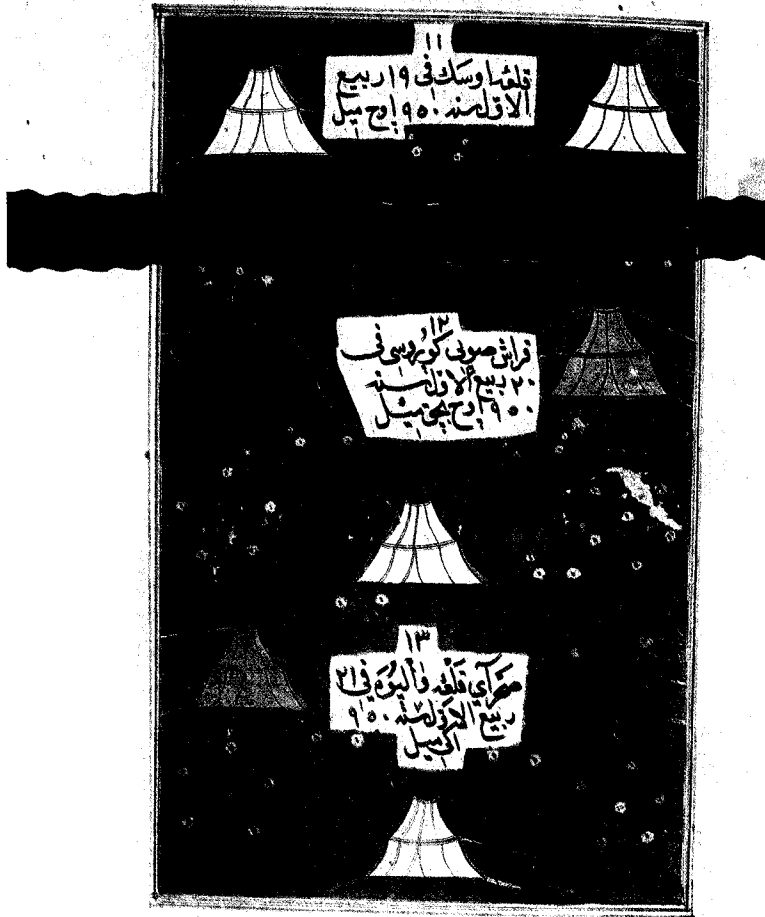 ١١
قلعهٔ اوسك فى ١٩ ربيع
الاول سنه ٩٥٠ اوح ميل
١٢
قراش صويى كوپروسى فى
٢٠ ربيع الاول سنه
٩٥٠ اوح ميل
١٣
صحراي قلعه والپوه في ٢١
ربيع الاول سنه ٩٥٠
ميل